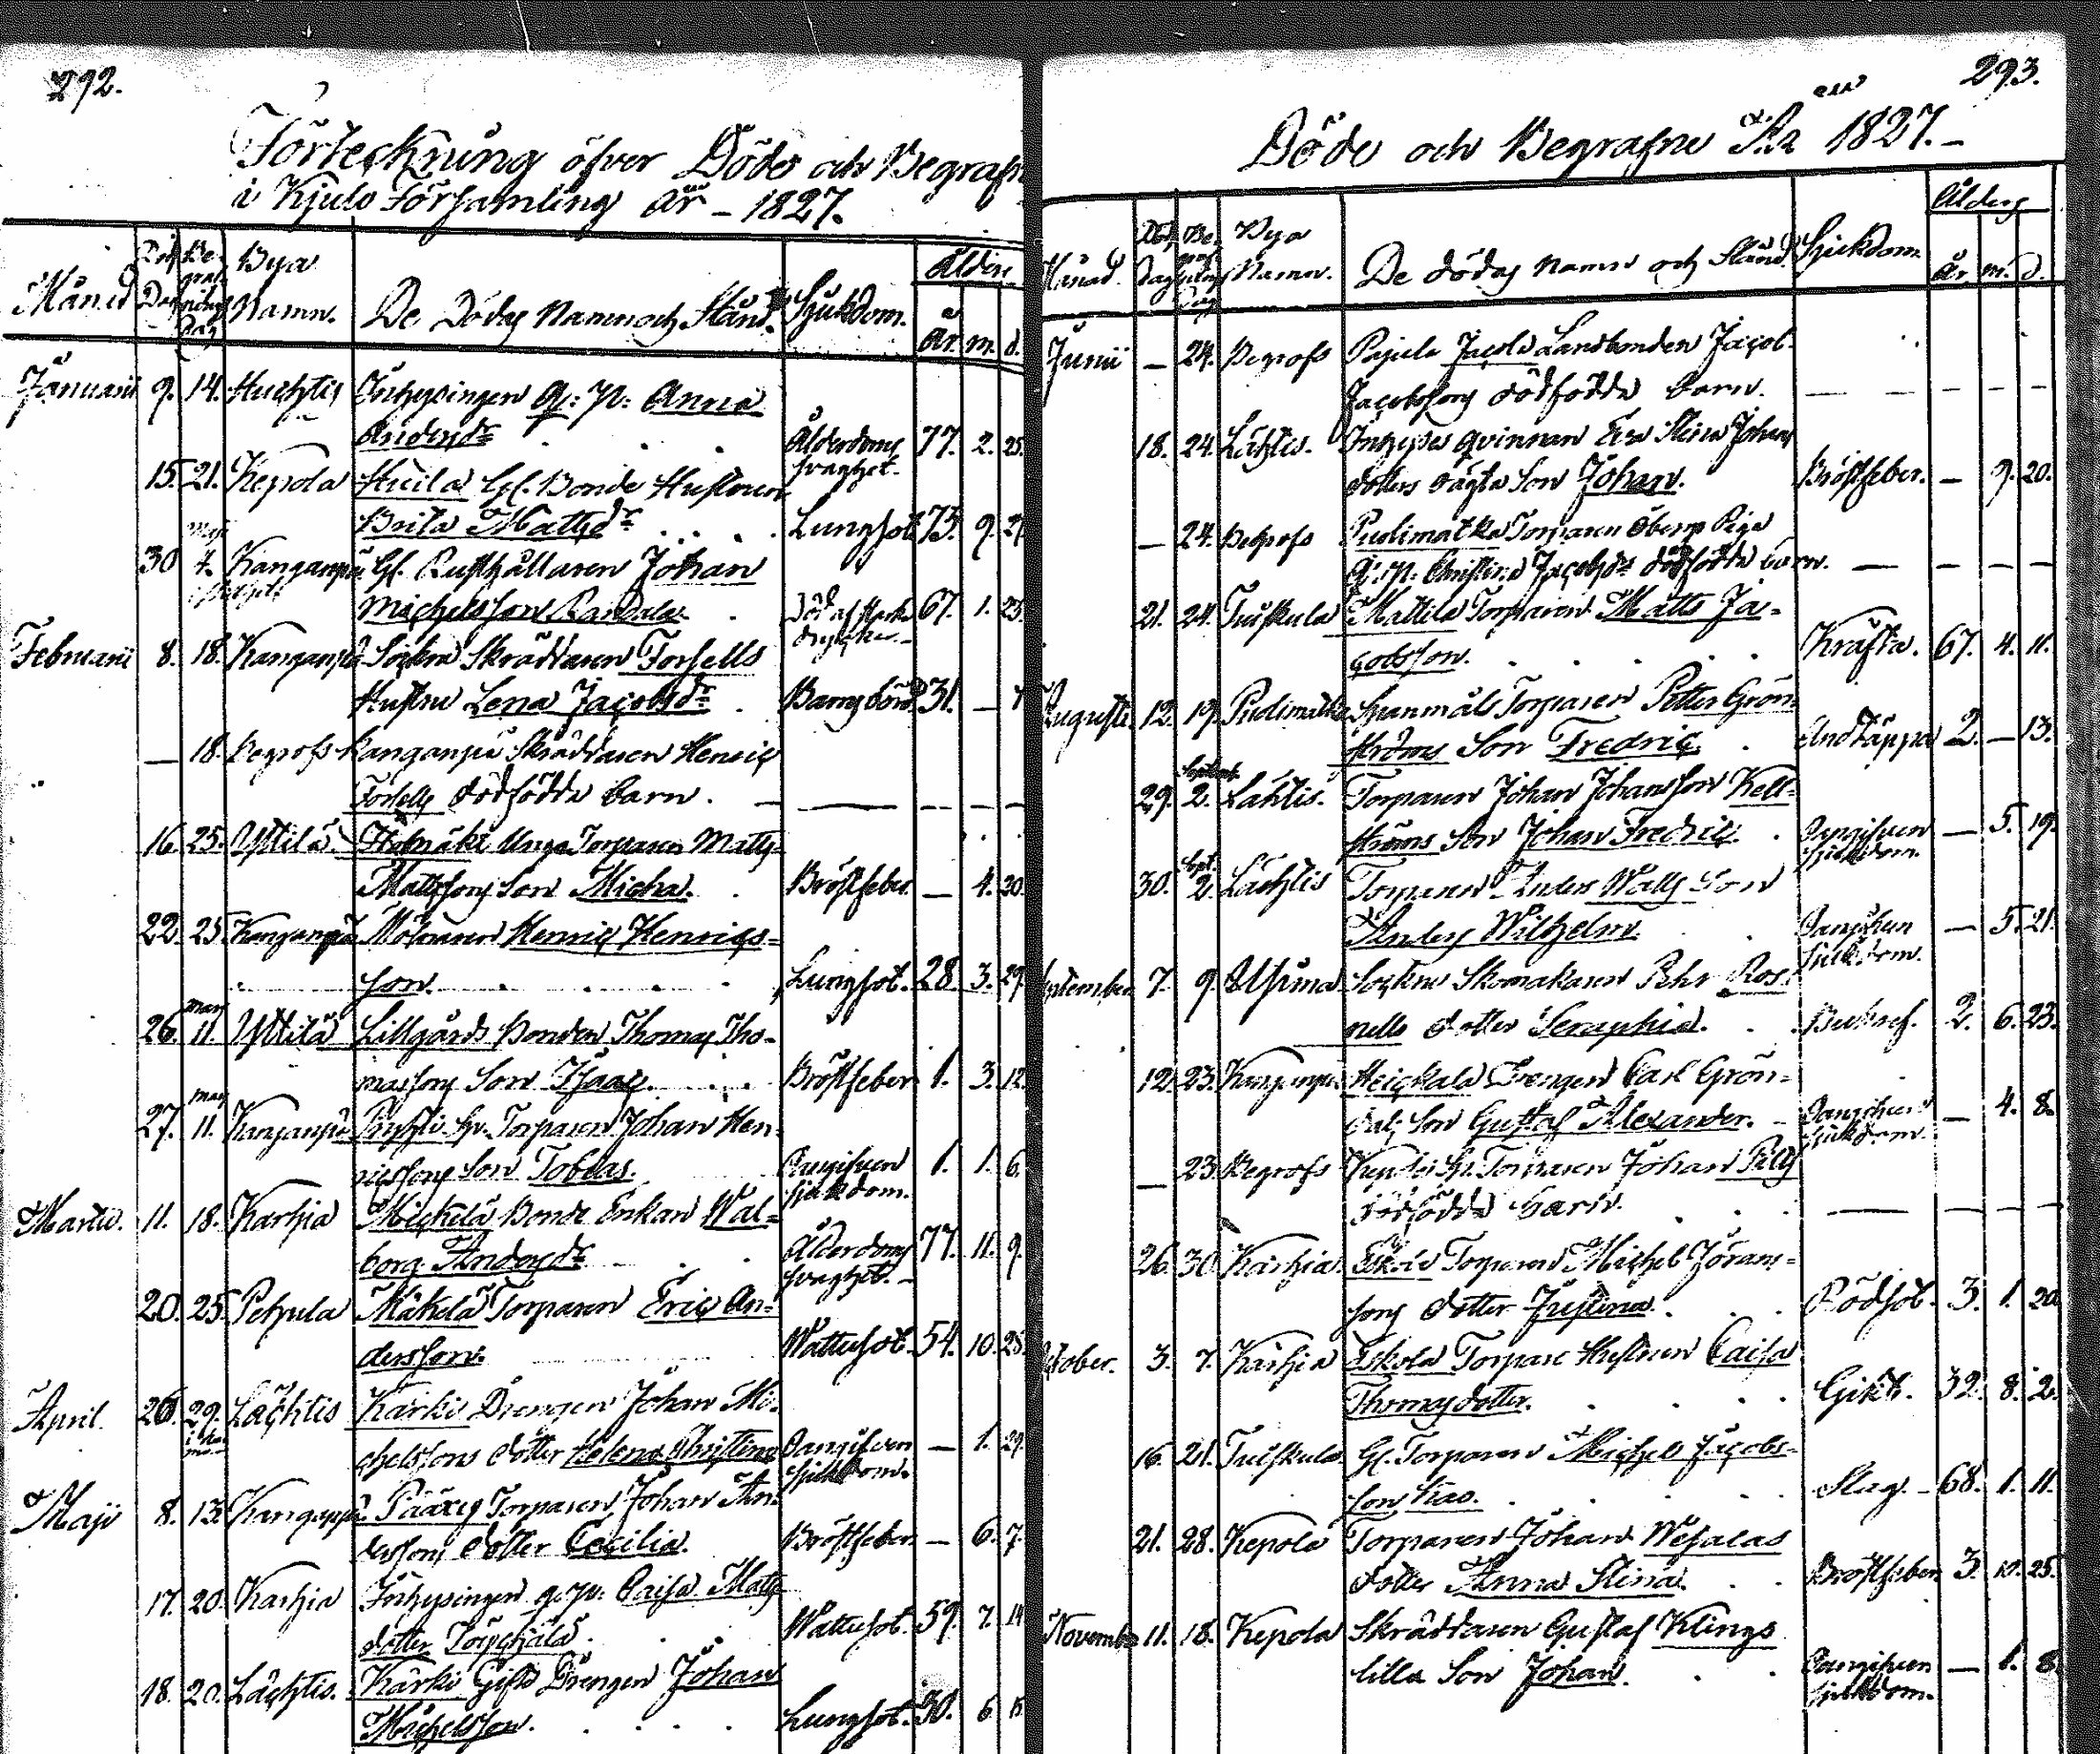 292.
Förteckning öfver Döde och Begrafn
i Kjulo Församling år - 1827.
Månad Död Dag Be-grafnings Dag Bya Namn. De Dödas Namn och Stånd. Sjukdom. Ålder.
år. m. d.
Januarii 9. 14. Huchtis Inhysingen Q: P: Anna
Andersdr Ålderdoms svaghet. 77. 2. 25.
15. 21. Kepola Huila Gl. Bonde Hustrun
Brita Mattsdr Lungsot 73. 9.
30 4. Kanganpä Gl. Rusthållaren Johan
Michelsson Randala Död af starka drycker 67. 1. 23.
Februarii 8. 18. Kanganpä Sockne Skräddaren Forsells
Hustru Lena Jacobsdr Barnsbörd 31. —
— 18. Begrofs Kanganpä Skräddaren Henric
Forsells dödfödda barn. — — — —
16. 25. Yttilä Unga Torparen Matts
Mattssons Son Micha. Bröstfeber — 4. 20.
22. 25. Kanganpä Mölnaren Henric Henrics-
son. Lungsot. 28. 3. 29.
26. mars 11. Yttilä Lillgårds Bonden Thomas Tho-
massons Son Isaac. Bröstfeber 1. 3. 12.
27. mars 11. Kanganpä Torparen Johan Hen-
ricssons Son Tobias. Oangifven sjukdom. 1. 1. 6.
Martii. 11. 18. Karhia Mickelä Bonde Enkan Wal-
borg Andersdr Ålderdoms svaghet. 77. 11. 9.
20. 25. Pehula Mäkelä Torparen Eric An-
dersson. Wattusot. 54. 10. 28.
April. 26. 29. Lächtis Kärki Drengen Johan Mi-
chelssons dotter Helena Christina Oangifven sjukdom. — 1. 29.
Maji 8. 13. Kanganpä Pääxis Torparen Johan
dotter Cecilia. Bröstfeber — 6. 7.
17. 20. Karhia Inhysingen q. p: Caisa Matts
dotter Wattusot. 59. 7. 14
18. 20. Lächtis. Kärki Gift Drengen Johan
Michelsson. Lungsot. 30. 6. 15.
293.
Döde och Begrafne År 1827. -
Månad. Död Dag Be-grafnings Dag Bya Namn. De dödas namn och Stånd. Sjukdom. Ålder
år. m. d.
Junii — 24. Begrofs Pajula Jacola Landbonden Jacob
Jacobssons dödfödda barn. — — — —
18. 24. Lächtis. Inhyses qvinnan Eva Stina Johans
dotters oägta Son Johan. Bröstfeber. — 9. 20.
— 24. Begrofs Pudimatka Torparen Piga
Q: P: Christina Jacobsdr dödfödda barn. — — — —
21. 24. Tuiskula Mattila Torparen Matts Ja-
cobsson. Kräfta. 67. 4. 11.
Augusti 12. 19. Pudimatka Spanmåls Torparen Petter Grön-
ströms Son Fredric Andtäppa 2. — 13.
29. Septemb. 2. Lächtis. Torparen Johan Johansson Kell-
ströms Son Johan Fredric. Oangifven sjukdom. — 5. 19.
30. Sept. 2. Lächtis Torparen Anders Walls Son
Anders Wilhelm Oangifven sjukdom. — 5. 21.
September 7. 9. Sockne Skomakaren Pehr Ros-
nells dotter Seraphia. 2. 6. 23.
12. 23. Kanganpä Heickala Drengen Carl Grön-
dals Son Gustaf Alexander. Oangifven sjukdom. — 4. 8.
— 23. Begrofs Torparen Johan
dödfödda barn. — — — —
26. 30. Karhia. Eskola Torparen Michel Jörans-
sons dotter Justina. Rödsot. 3. 1. 20
October. 3. 7. Karhia Eskola Torpare Hustrun Caisa
Thomasdotter. Gikt. 32. 8. 2.
16. 21. Tuiskula Gl. Torparen Michel Jacobs-
son Slag. 68. 1. 11.
21. 28. Kepola Torparen Johan Wesalas
dotter Anna Stina. Bröstfeber 3. 10. 25.
November 11. 18. Kepola Skräddaren Gustaf Klings
lilla Son Johan. Oangifven sjukdom. — 1. 8.